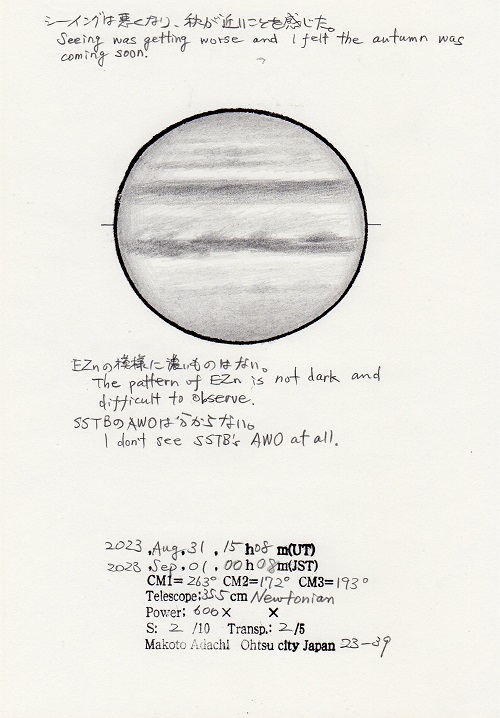 シーイングは悪くなり、秋が近いことを感じた。
Seeing was getting worse and I felt the autumn was
coming soon.
EZnの模様に濃いものはない。
The pattern of EZn is not dark and
difficult to observe.
SSTBのAWOは分からない。
I don't see SSTB's AWO at all.
2023 ,Aug, 31 , 15 h 08 m(UT)
2023 ,Sep, 01 , 00 h 08 m(JST)
CM1= 263° CM2= 172° CM3= 193°
Telescope; 355 cm Newtonian
Power; 606 × ×
S: 2 /10 Transp.: 2 /5
Makoto Adachi Ohtsu city Japan 23-39